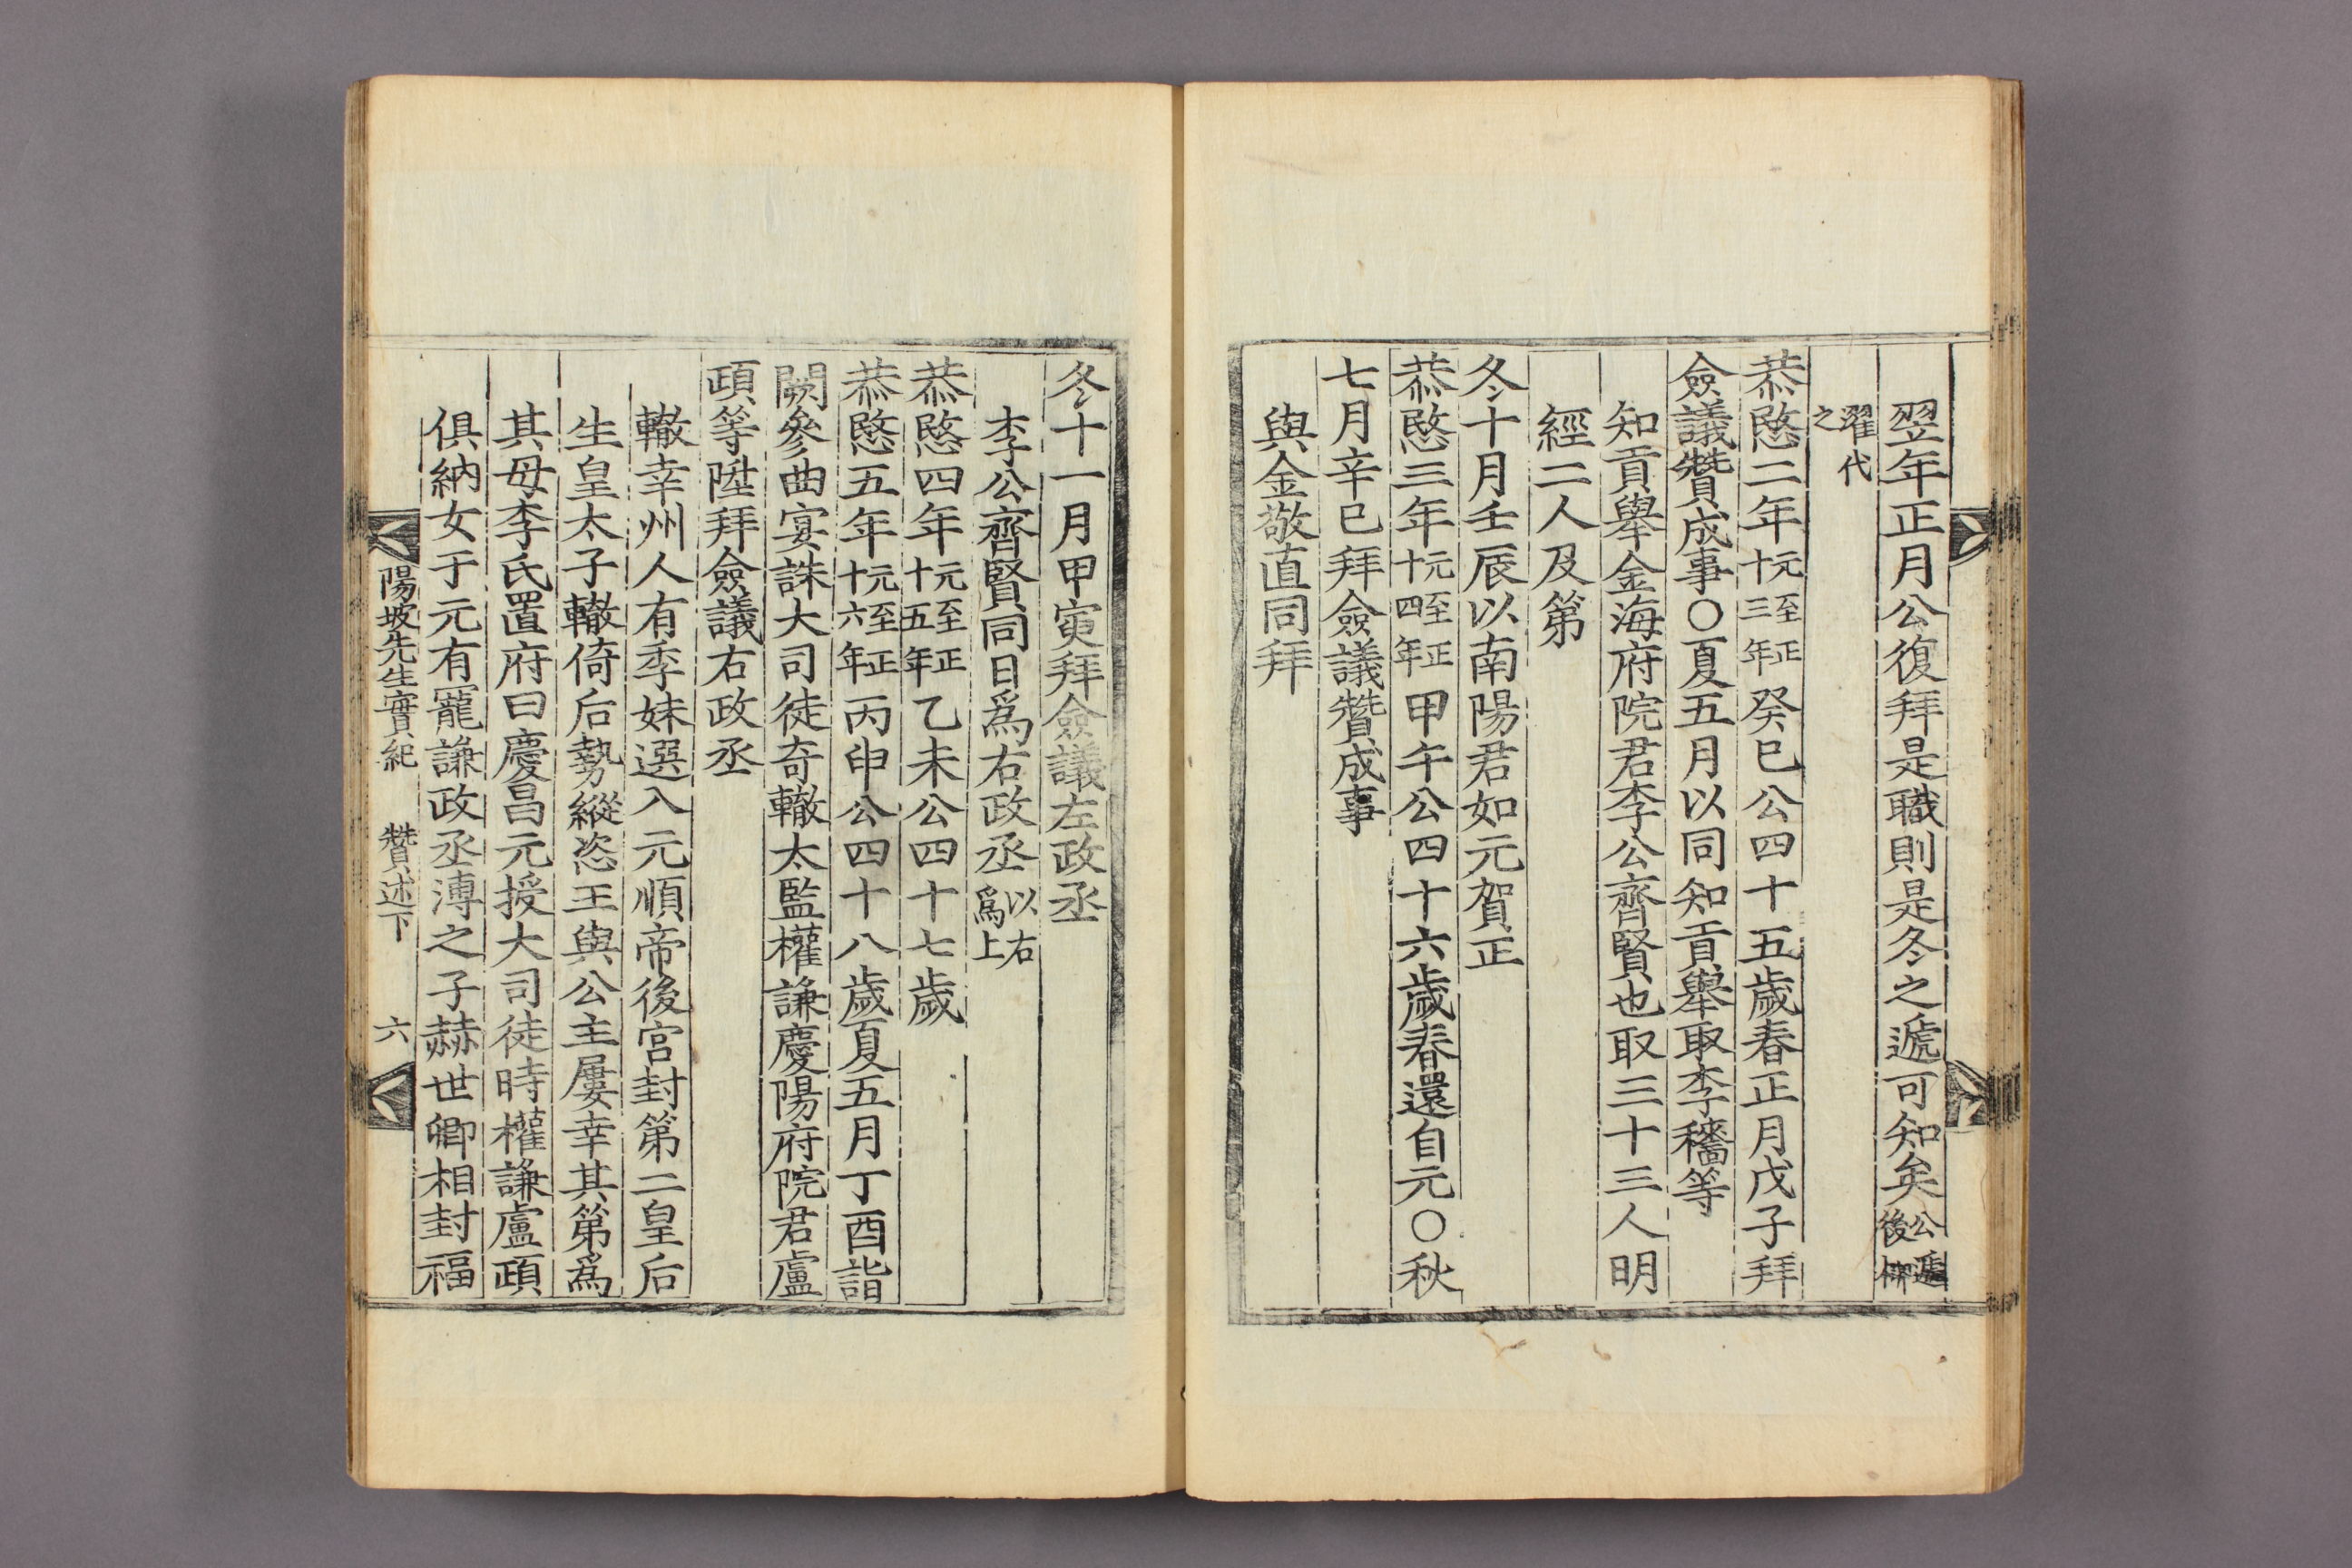 翌年正月公復拜是職則是冬之遞可知矣公遞後柳
濯代之
恭愍二年元至正十三年癸巳公四十五歲春正月戊子拜
僉議贊成事○夏五月以同知貢擧取李穡等
知貢擧金海府院君李公齊賢也取三十三人明
經二人及第
冬十月壬辰以南陽君如元賀正
恭愍三年元至正十四年甲午公四十六歲春還自元○秋
七月辛巳拜僉議贊成事
與金敬直同拜
冬十一月甲寅拜僉議左政丞
李公齊賢同日爲右政丞以右爲上
恭愍四年元至正十五年乙未公四十七歲
恭愍五年元至正十六年丙申公四十八歲夏五月丁酉詣
闕參曲宴誅大司徒奇轍太監權謙慶陽府院君盧
頙等陞拜僉議右政丞
轍幸州人有季妹選入元順帝後宮封第二皇后
生皇太子轍倚后勢縱恣王與公主屢幸其第爲
其母李氏置府曰慶昌元授大司徒時權謙盧頙
俱納女于元有寵謙政丞溥之子赫世卿相封福
陽坡先生實紀 贊述下 六